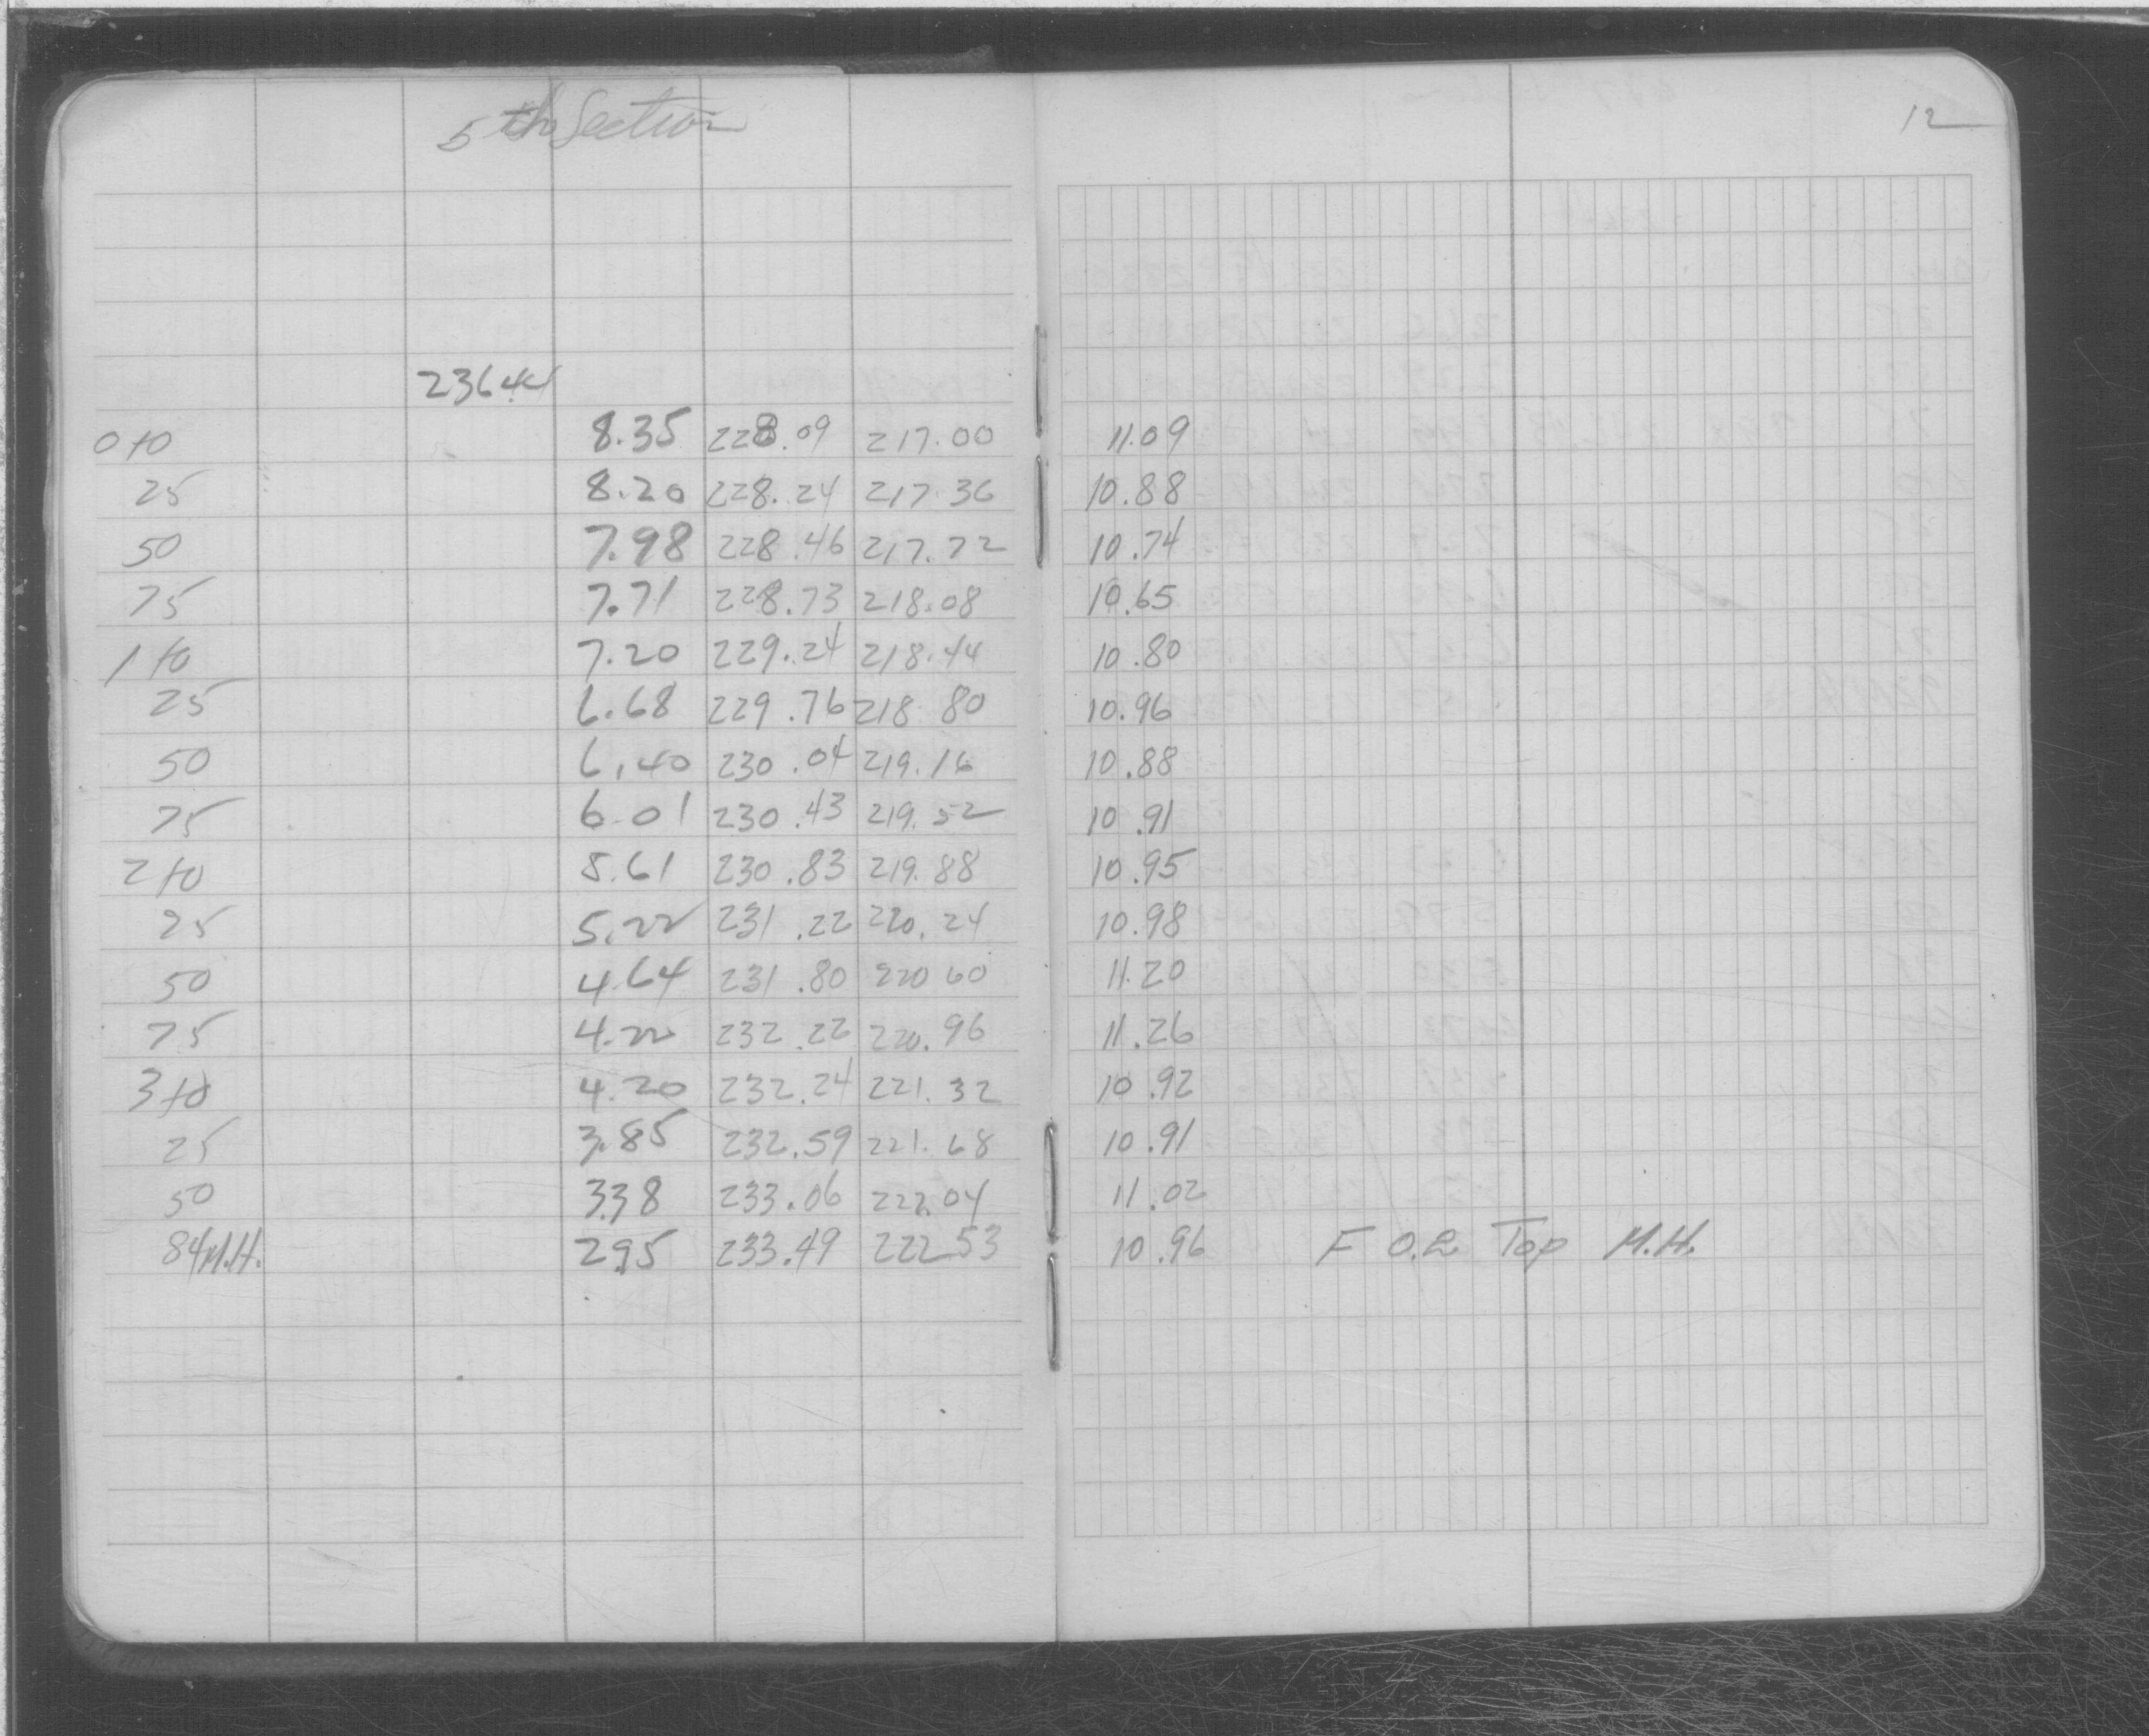 5th Section
12
236.44
0+0 8.35 228.09 217.00 11.09
25 8.20 228.24 217.36 10.88
50 7.98 228.46 217.72 10.74
75 7.71 228.73 218.08 10.65
1+0 7.20 229.24 218.44 10.80
25 6.68 229.76 218 80 10.96
50 6.40 230.04 219.16 10.88
75 6.01 230.43 219.52 10.91
2+0 5.61 230.83 219.88 10.95
25 5.22 231.22 220.24 10.98
50 4.64 231.80 220 60 11.20
75 4.22 232.22 220.96 11.26
3+0 4.20 232.24 221.32 10.92
25 3.85 232.59 221.68 10.91
50 3.38 233.06 222.04 11.02
84 M.H. 2.95 233.49 222 53 10.96 F 0.2 Top M.H.